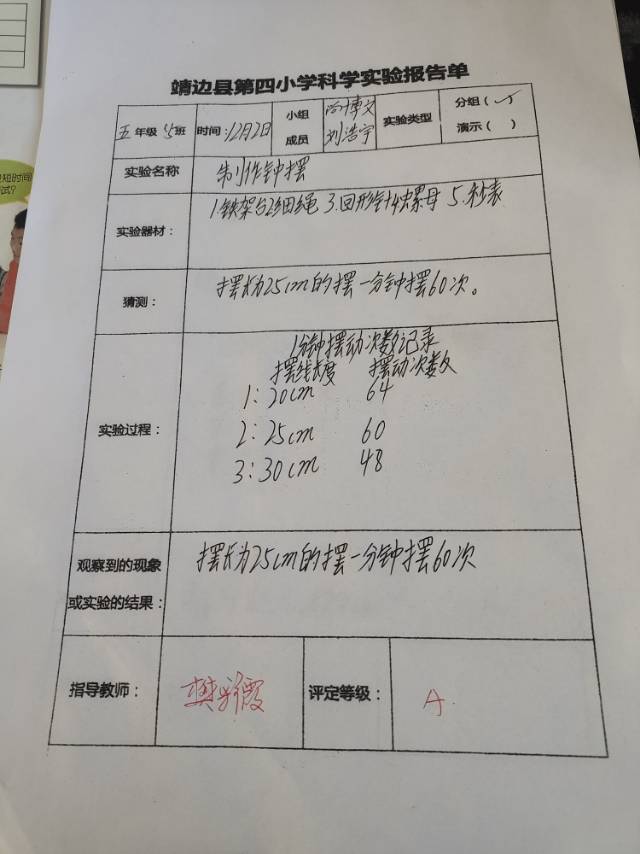 靖边县第四小学科学实验报告单
五年级 班 时间:12月2日 小组成员 博文 刘浩宇 实验类型 分组(✓) 演示( )
实验名称 制作钟摆
实验器材: 1铁架台2细绳 3.回形针4螺母 5.秒表
猜测: 摆长为25cm的摆一分钟摆60次。
1分钟摆动次数记录
摆线长度 摆动次数
1:20cm 64
实验过程: 2:25cm 60
3:30cm 48
观察到的现象
或实验的结果: 摆长为25cm的摆一分钟摆60次
指导教师: 樊彩霞 评定等级: A
短时间
试?